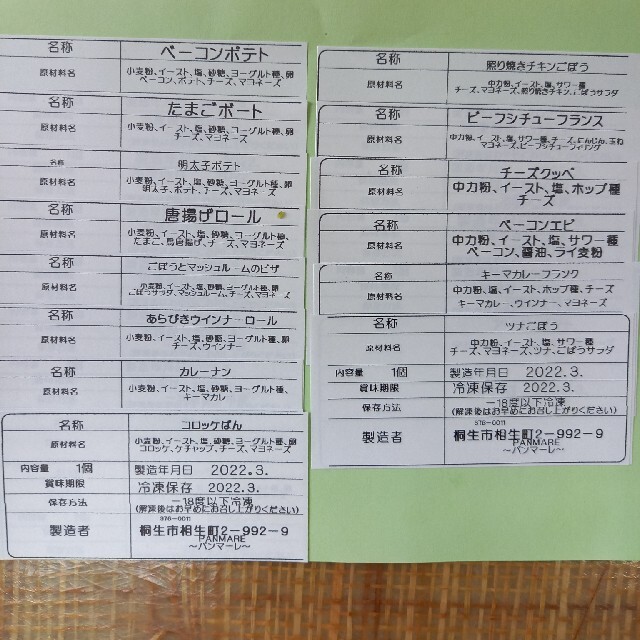 名称 ベーコンポテト
原材料名 小麦粉、イースト、塩、砂糖、ヨーグルト種、卵
ベーコン、ポテト、チーズ、マヨネーズ
名称 たまごボート
原材料名 小麦粉、イースト、塩、砂糖、ヨーグルト種、卵
チーズ、マヨネーズ
名称 明太子ポテト
原材料名 小麦粉、イースト、塩、砂糖、ヨーグルト種、卵
明太子、ポテト、チーズ、マヨネーズ
名称 唐揚げロール
原材料名 小麦粉、イースト、塩、砂糖、ヨーグルト種、
たまご、鳥唐揚げ、チーズ、マヨネーズ
名称 ごぼうとマッシュルームのピザ
原材料名 小麦粉、イースト、塩、砂糖、ヨーグルト種、卵
ごぼうサラダ、マッシュルーム、チーズ、マヨネーズ
名称 あらびきウインナーロール
原材料名 小麦粉、イースト、塩、砂糖、ヨーグルト種、卵
チーズ、ウインナー
名称 カレーナン
原材料名 小麦粉、イースト、塩、砂糖、ヨーグルト種、
キーマカレー
名称 コロッケぱん
原材料名 小麦粉、イースト、塩、砂糖、ヨーグルト種、卵
コロッケ、ケチャップ、チーズ、マヨネーズ
内容量 1個 製造年月日 2022.3.
賞味期限 冷凍保存 2022.3.
保存方法 −18度以下冷凍
(解凍後はお早めにお召し上がりください)
製造者 376-0011
桐生市相生町2−992−9
PANMARE
〜パンマーレ〜
名称 照り焼きチキンごぼう
原材料名 中力粉、イースト、塩、サワー種
チーズ、マヨネーズ、照り焼きチキン、ごぼうサラダ
名称 ビーフシチューフランス
原材料名 中力粉、イースト、塩、サワー種、チーズ、にんじん、玉ね
マヨネーズ、ビーフシチューフィリング
名称 チーズクッペ
原材料名 中力粉、イースト、塩、ホップ種
チーズ
名称 ベーコンエピ
原材料名 中力粉、イースト、塩、サワー種
ベーコン、醤油、ライ麦粉
名称 キーマカレーフランク
原材料名 中力粉、イースト、ホップ種、チーズ
キーマカレー、ウインナー、マヨネーズ
名称 ツナごぼう
原材料名 中力粉、イースト、塩、サワー種
チーズ、マヨネーズ、ツナ、ごぼうサラダ
内容量 1個 製造年月日 2022.3.
賞味期限 冷凍保存 2022.3.
保存方法 −18度以下冷凍
(解凍後はお早めにお召し上がりください)
製造者 376-0011
桐生市相生町2−992−9
PANMARE
〜パンマーレ〜